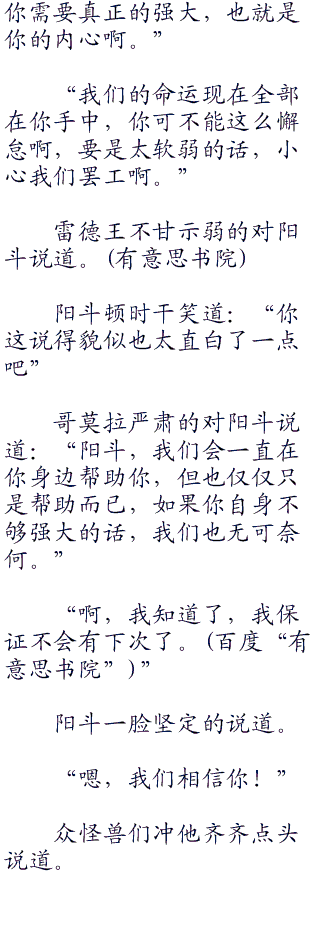 你需要真正的强大，也就是
你的内心啊。”
“我们的命运现在全部
在你手中，你可不能这么懈
怠啊，要是太软弱的话，小
心我们罢工啊。”
雷德王不甘示弱的对阳
斗说道。(有意思书院)
阳斗顿时干笑道：“你
这说得貌似也太直白了一点
吧”
哥莫拉严肃的对阳斗说
道：“阳斗，我们会一直在
你身边帮助你，但也仅仅只
是帮助而已，如果你自身不
够强大的话，我们也无可奈
何。”
“啊，我知道了，我保
证不会有下次了。(百度“有
意思书院”)”
阳斗一脸坚定的说道。
“嗯，我们相信你！”
众怪兽们冲他齐齐点头
说道。